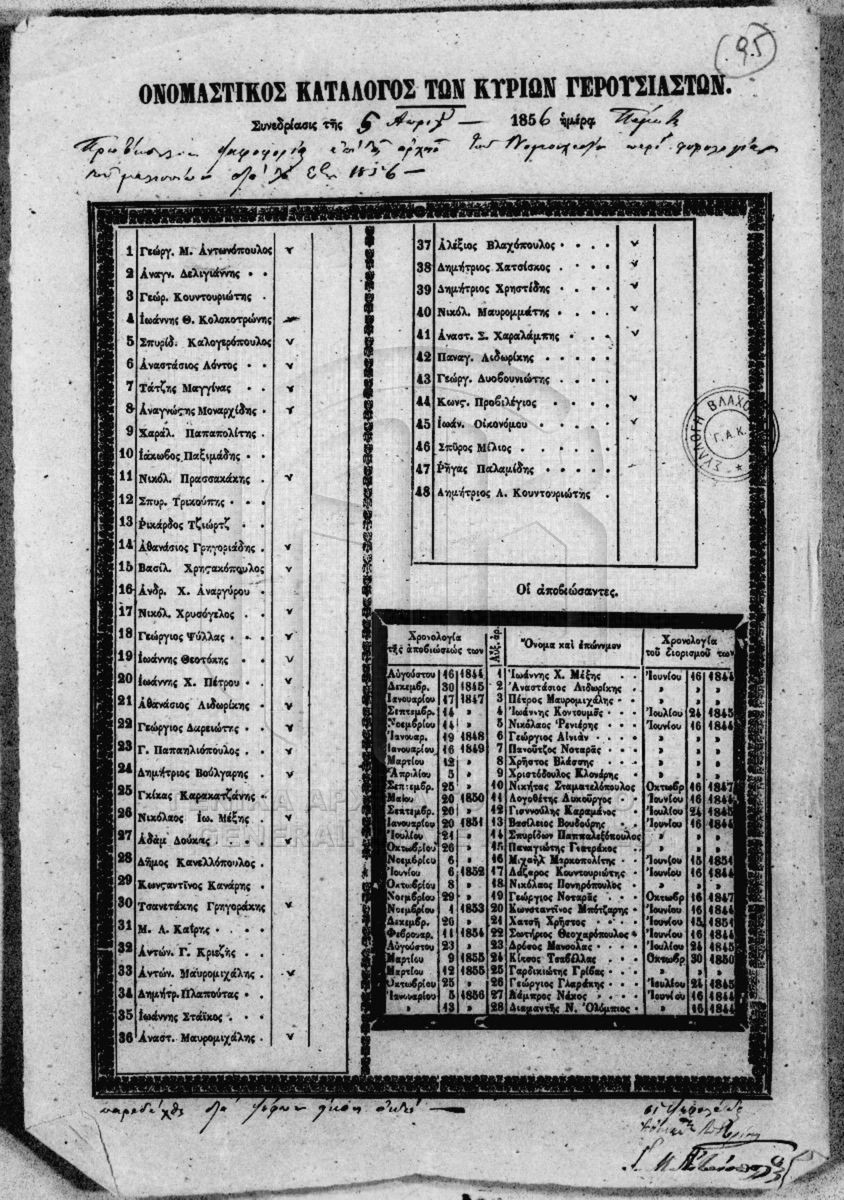 95
ΟΝΟΜΑΣΤΙΚΟΣ ΚΑΤΑΛΟΓΟΣ ΤΩΝ ΚΥΡΙΩΝ ΓΕΡΟΥΣΙΑΣΤΩΝ.
Συνεδρίασις τῆς 5 — 1856 ἡμέρᾳ
1856 —
1 Γεώργ. Μ. Ἀντωνόπουλος v
2 Ἀναγν. Δελιγιάννης
3 Γεώρ. Κουντουριώτης
4 Ἰωάννης Θ. Κολοκοτρώνης
5 Σπυρίδ. Καλογερόπουλος v
6 Ἀναστάσιος Λόντος v
7 Τάτζης Μαγγίνας v
8 Ἀναγνώςης Μοναρχίδης v
9 Χαράλ. Παπαπολίτης
10 Ἰάκωβος Παξιμάδης
11 Νικόλ. Πρασσακάκης v
12 Σπυρ. Τρικούπης
13 Ῥικάρδος Τζιώρτζ
14 Ἀθανάσιος Γρηγοριάδης v
15 Βασίλ. Χρηςακόπουλος v
16 Ἀνδρ. Χ. Ἀναργύρου
17 Νικόλ. Χρυσόγελος v
18 Γεώργιος Ψύλλας v
19 Ἰωάννης Θεοτόκης v
20 Ἰωάννης Χ. Πέτρου v
21 Ἀθανάσιος Λιδωρίκης v
22 Γεώργιος Δαρειώτης v
23 Γ. Παπαηλιόπουλος v
24 Δημήτριος Βούλγαρης v
25 Γκίκας Καρακατζάνης
26 Νικόλαος Ἰω. Μέξης v
27 Ἀδὰμ Δούκας v
28 Δῆμος Κανελλόπουλος
29 Κωνςαντῖνος Κανάρης
30 Τσανετάκης Γρηγοράκης v
31 Μ. Α. Καΐρης
32 Ἀντών. Γ. Κριεζῆς
33 Ἀντών. Μαυρομιχάλης v
34 Δημήτρ. Πλαπούτας
35 Ἰωάννης Στάϊκος
36 Ἀναστ. Μαυρομιχάλης v
37 Ἀλέξιος Βλαχόπουλος v
38 Δημήτριος Χατσίσκος v
39 Δημήτριος Χρηστίδης v
40 Νικόλ. Μαυρομμάτης v
41 Ἀναστ. Σ. Χαραλάμπης v
42 Παναγ. Λιδωρίκης
43 Γεώργ. Δυοβουνιώτης
44 Κωνς. Προβιλέγιος v
45 Ἰωάν. Οἰκονόμου v
46 Σπῦρος Μίλιος
47 Ῥήγας Παλαμίδης
48 Δημήτριος Λ. Κουντουριώτης
ΣΥΛΛΟΓΗ ΒΛΑΧΟ
Γ.Α.Κ.
Οἱ ἀποβιώσαντες.
Χρονολογία τῆς ἀποβιώσεώς των Αὔξ. ἀρ. Ὄνομα καὶ ἐπώνυμον Χρονολογία τοῦ διορισμοῦ των
Αὐγούστου 16 1844 1 Ἰωάννης Χ. Μέξης Ἰουνίου 16 1844
Δεκεμβρ. 30 1845 2 Ἀναστάσιος Λιδωρίκης » » »
Ἰανουαρίου 17 1847 3 Πέτρος Μαυρομιχάλης » » »
Σεπτεμβρ. 14 » 4 Ἰωάννης Κοντουμᾶς Ἰουλίου 24 1845
Νοεμβρίου 14 » 5 Νικόλαος Ῥενιέρης Ἰουνίου 16 1844
Ἰανουαρ. 19 1848 6 Γεώργιος Αἰνιὰν » » »
Ἰανουαρίου 16 1849 7 Πανοῦτζος Νοταρᾶς » » »
Μαρτίου 12 » 8 Χρῆστος Βλάσσης » » »
Ἀπριλίου 5 » 9 Χριστόδουλος Κλονάρης » » »
Σεπτεμβρ. 25 » 10 Νικήτας Σταματελόπουλος Ὀκτωβρ 16 1847
Μαΐου 20 1850 11 Λογοθέτης Λυκοῦργος Ἰουνίου 16 1844
Σεπτεμβρ. 26 » 12 Γιαννούλης Καραμάνος Ἰουλίου 24 1845
Ἰανουαρίου 20 1851 13 Βασίλειος Βουδούρης Ἰουνίου 16 1844
Ἰουλίου 21 » 14 Σπυρίδων Παππαλεξόπουλος » » »
Ὀκτωβρίου 26 » 15 Παναγιώτης Γιατράκος » » »
Νοεμβρίου 6 » 16 Μιχαὴλ Μαρκοπολίτης Ἰουνίου 15 1851
Ἰουνίου 6 1852 17 Λάζαρος Κουντουριώτης Ἰουνίου 16 1844
Ὀκτωβρίου 8 » 18 Νικόλαος Πονηρόπουλος » » »
Νοεμβρίου 29 » 19 Γεώργιος Νοταρᾶς Ὀκτωβρ 16 1847
Νοεμβρίου 1 1853 20 Κωνσταντῖνος Μπότζαρης Ἰουνίου 16 1844
Δεκεμβρ. 26 » 21 Χατσῆ Χρῆστος Ἰουνίου 15 1851
Φεβρουαρ. 11 1854 22 Σωτήριος Θεοχαρόπουλος Ἰουνίου 16 1844
Αὐγούστου 23 » 23 Δρόσος Μανσόλας Ἰουλίου 24 1845
Μαρτίου 9 1855 24 Κίτσος Τσαβέλλας Ὀκτωβρ 30 1850
Μαρτίου 12 1855 25 Γαρδικιώτης Γρίβας » » »
Ὀκτωβρίου 25 » 26 Γεώργιος Γλαράκης Ἰουλίου 24 1845
Ἰανουαρίου 5 1856 27 Λάμπρος Νάκος Ἰουνίου 16 1844
» 13 » 28 Διαμαντῆς Ν. Ὀλύμπιος » 16 1844